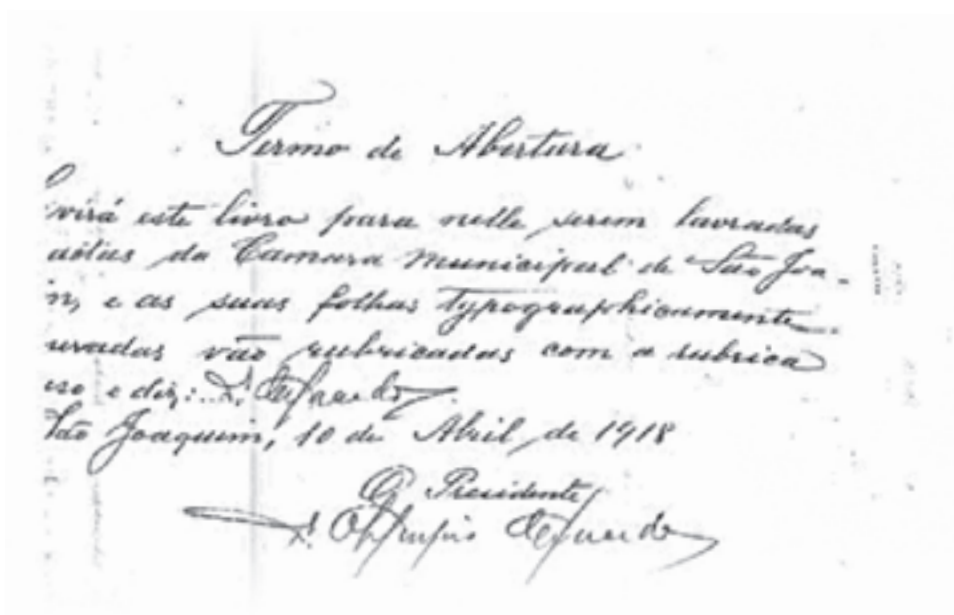 Termo de Abertura
virá este livro para nelle serem lavradas
actas da Camara Municipal de São Joa-
n, e as suas folhas typographicamente
uradas vão rubricadas com a rubrica
uso e diz:
São Joaquim, 10 de Abril de 1918
O Presidente